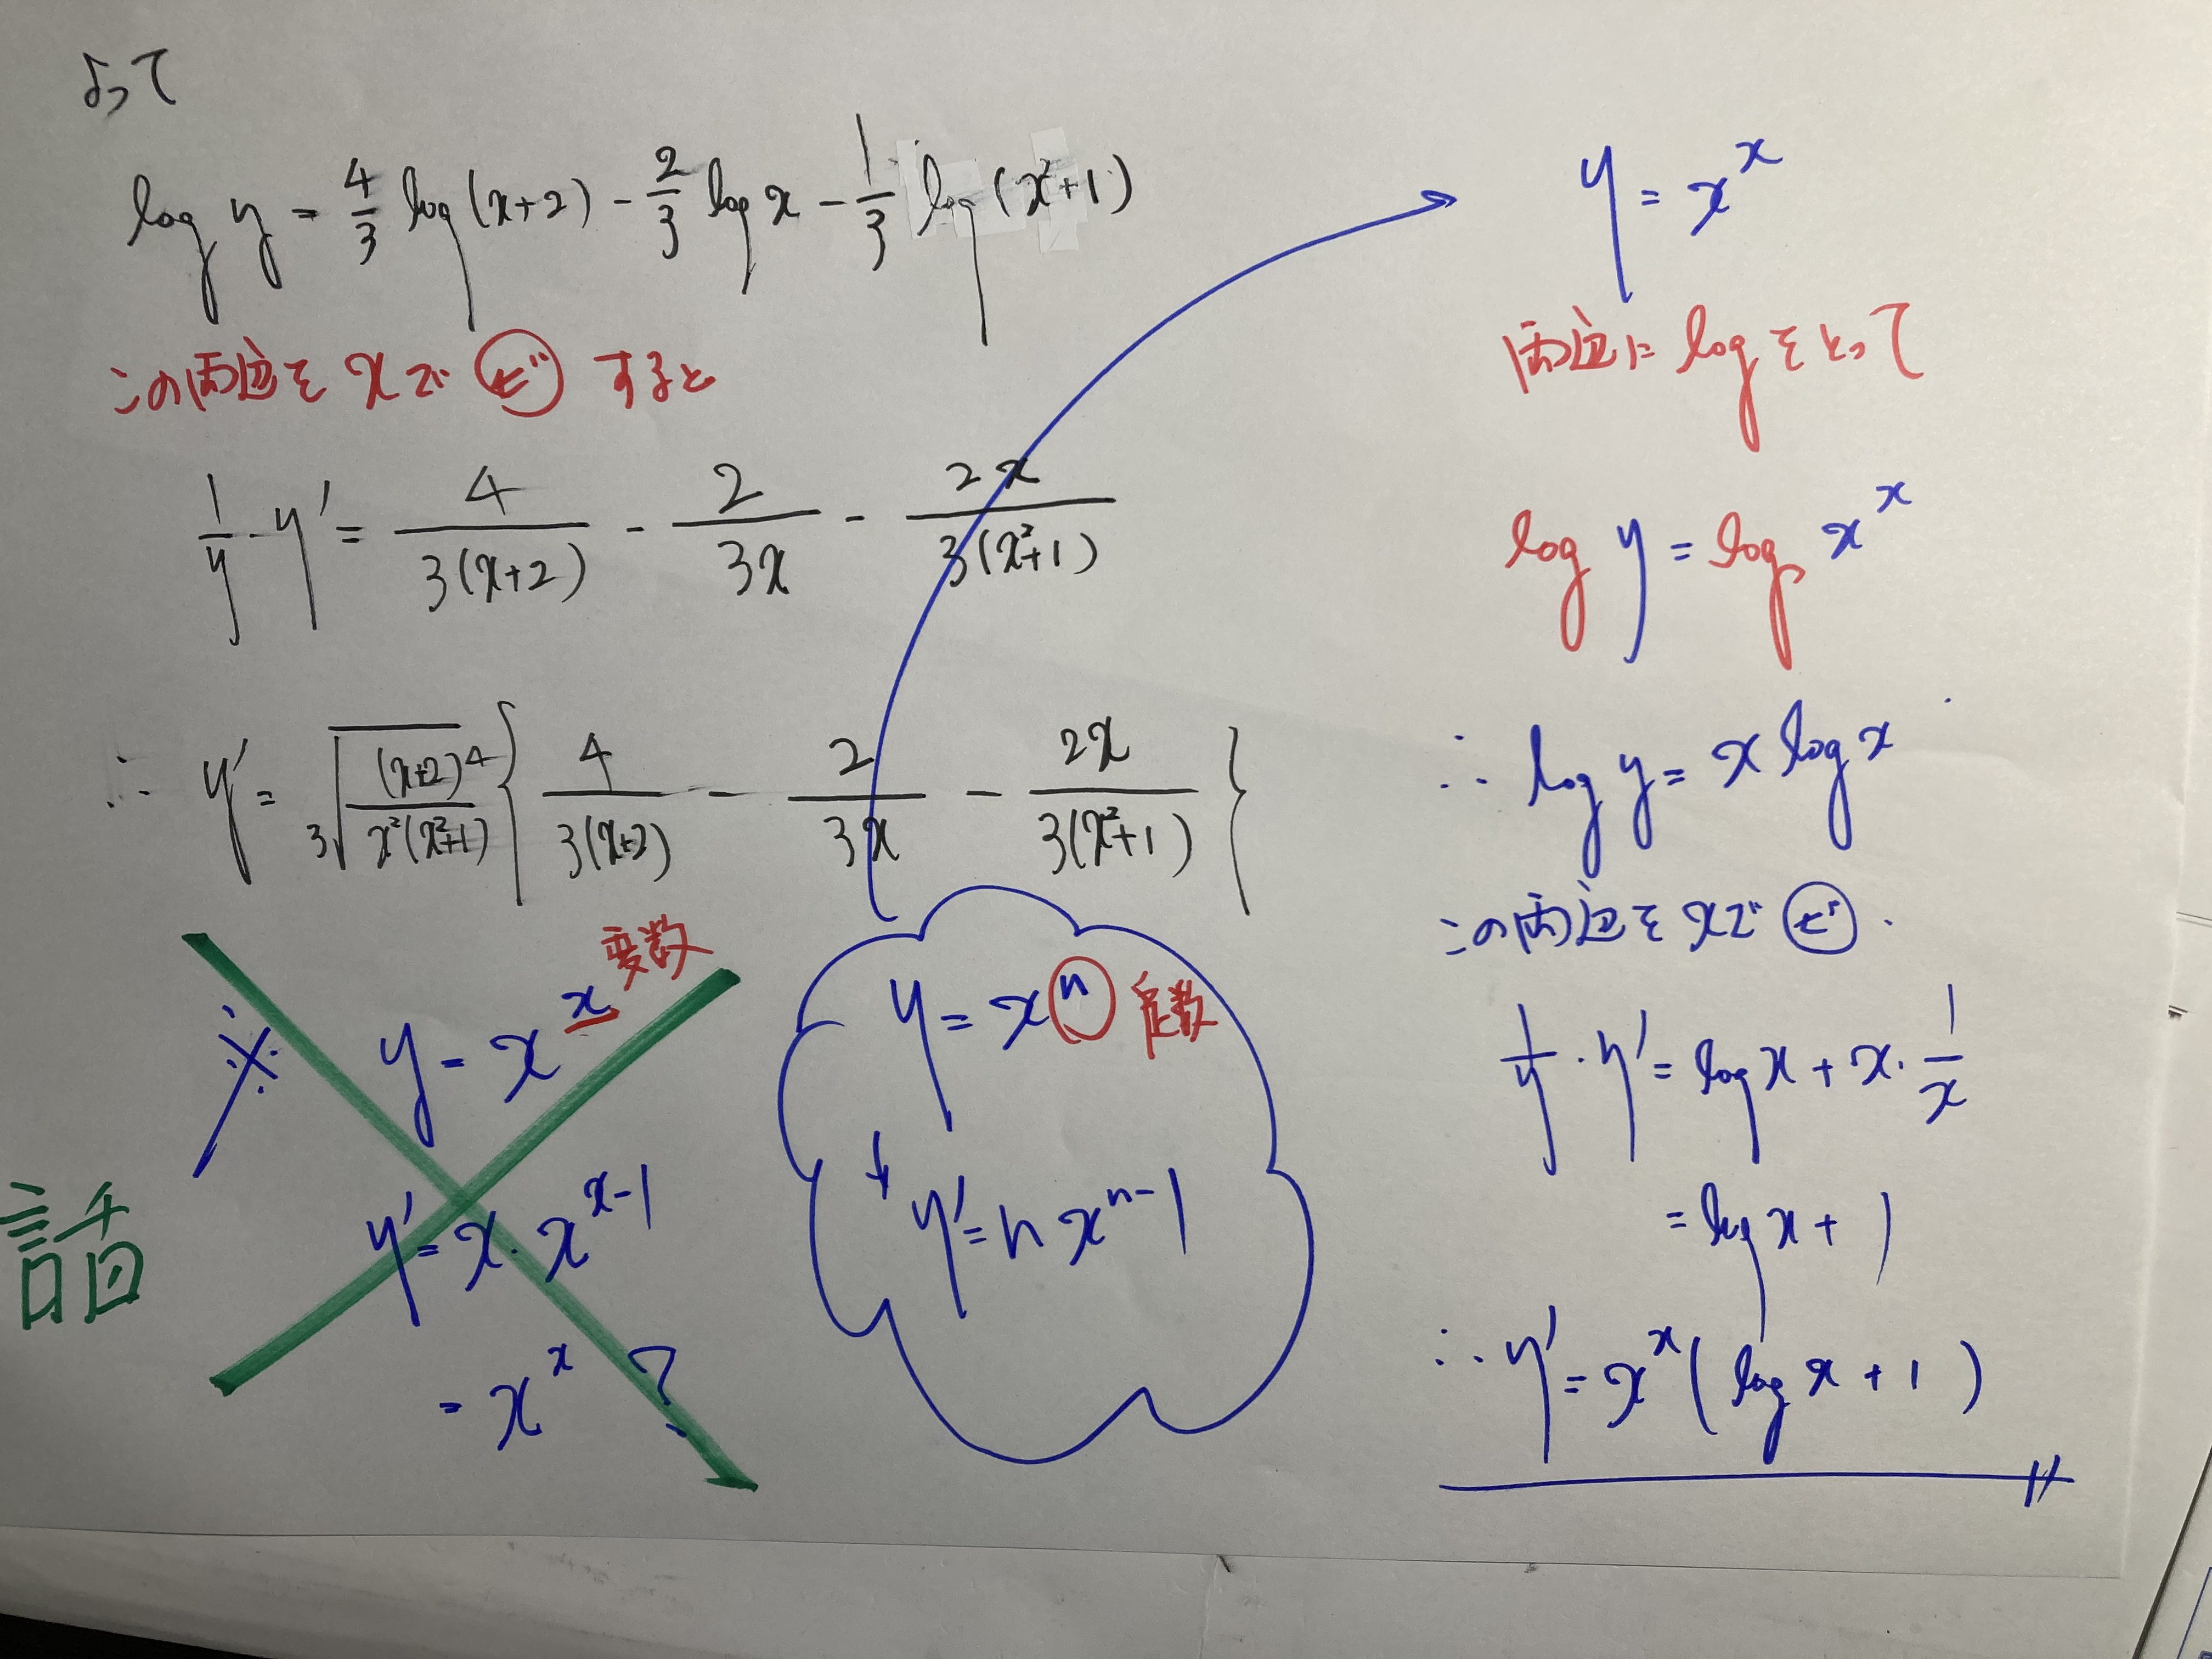 よって
log y = 4/3 log(x+2) - 2/3 log x - 1/3 log(x²+1)
この両辺を xで ㋪ すると
1/y · y' = 4/3(x+2) - 2/3x - 2x/3(x²+1)
∴ y' = ³√((x+2)⁴/x²(x²+1)) { 4/3(x+2) - 2/3x - 2x/3(x²+1) }
※ y = x^x 変数
y' = x · x^(x-1)
= x^x ?
話
y = x^n 定数
↓ y' = n x^(n-1)
y = x^x
両辺に log をとって
log y = log x^x
∴ log y = x log x
この両辺を xで
1/y · y' = log x + x · 1/x
= log x + 1
∴ y' = x^x ( log x + 1 )